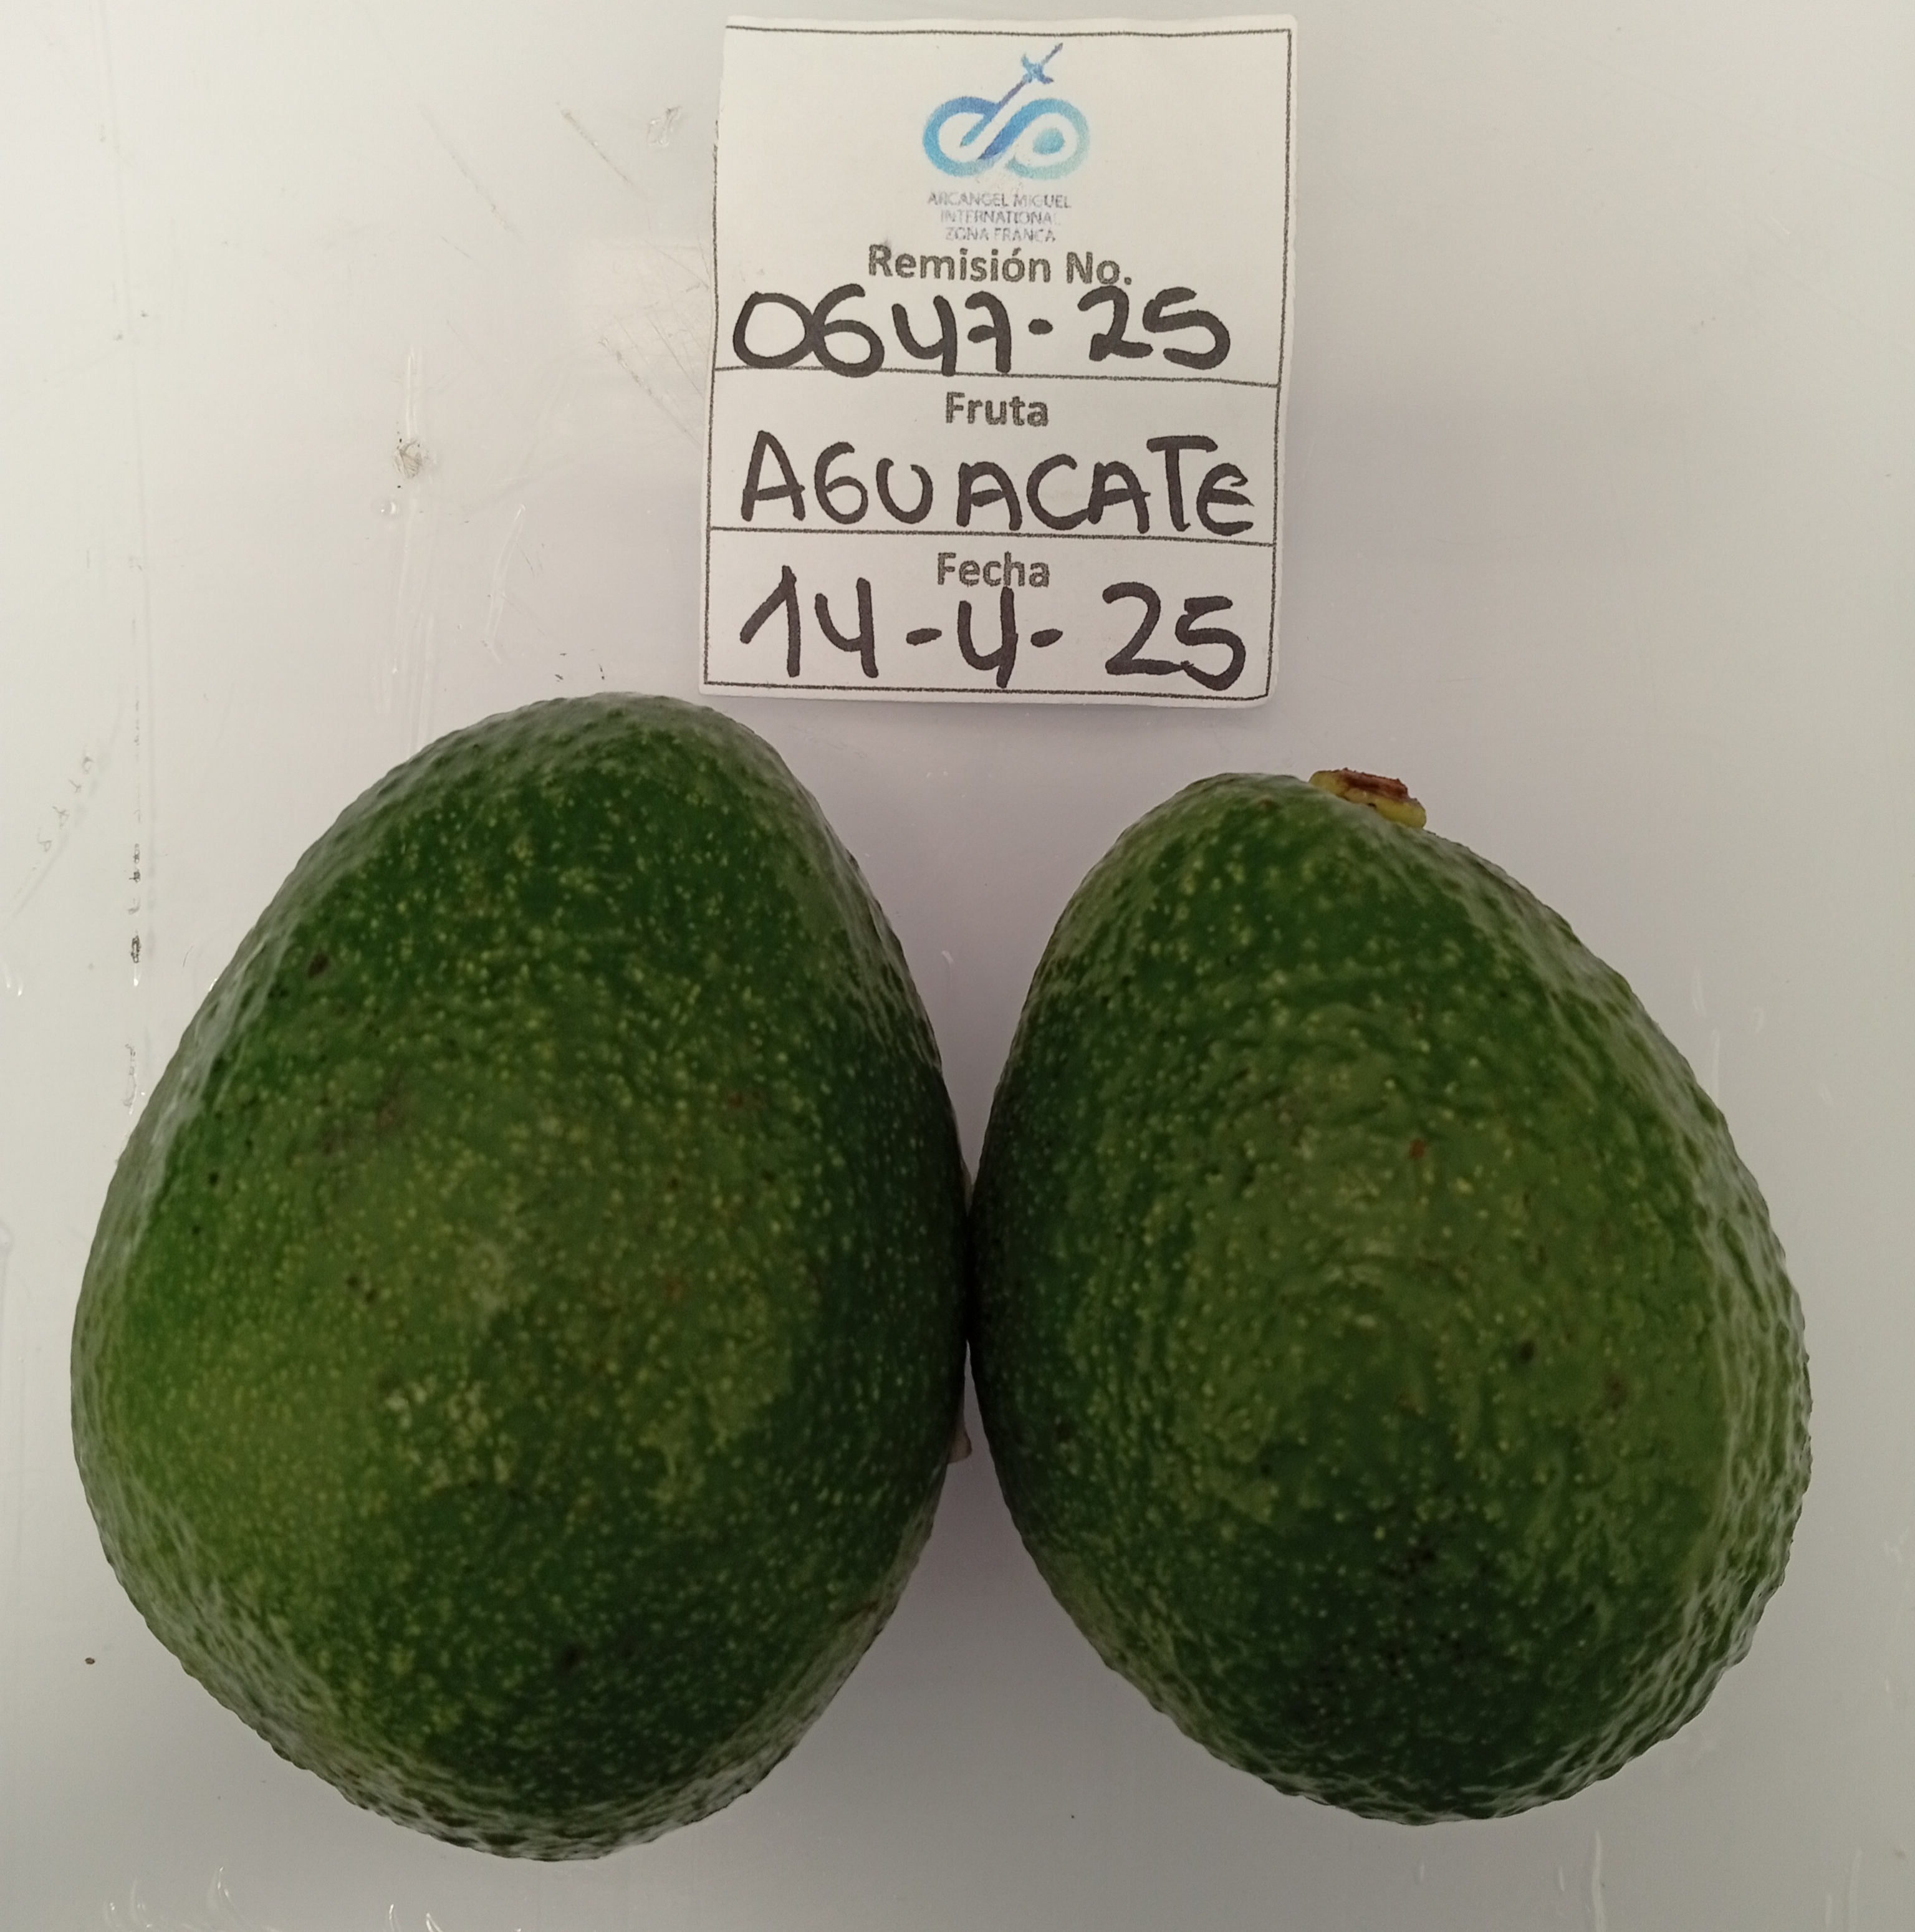 ARCANGEL MIGUEL
INTERNATIONAL
ZONA FRANCA
Remisión No.
0647-25
Fruta
AGUACATE
Fecha
14-4-25